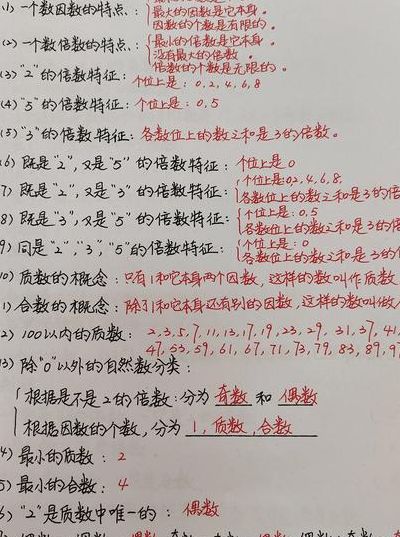 (1) 一个数因数的特点：最大的因数是它本身。
因数的个数是有限的。
(2) 一个数倍数的特点：最小的倍数是它本身。
没有最大的倍数。
倍数的个数是无限的。
(3) "2"的倍数特征：个位上是：0,2,4,6,8
(4) "5"的倍数特征：个位上是：0,5
(5) "3"的倍数特征：各数位上的数之和是3的倍数。
6) 既是"2"，又是"5"的倍数特征：个位上是0
7) 既是"2"，又是"3"的倍数特征：个位上是：0,2,4,6,8.
各数位上的数之和是3的倍
8) 既是"3"，又是"5"的倍数特征：个位上是：0,5
各数位上的数之和是3的倍
9) 同是"2"，"3"，"5"的倍数特征：个位上是：0
各数位上的数之和是3的
10) 质数的概念：只有1和它本身两个因数，这样的数叫作质数
1) 合数的概念：除了1和它本身还有别的因数，这样的数叫做
2) 100以内的质数：2,3,5,7,11,13,17,19,23,29,31,37,41
47,53,59,61,67,71,73,79,83,89,97
3) 除"0"以外的自然数分类：
根据是不是2的倍数：分为 奇数 和 偶数
根据因数的个数，分为 1，质数，合数
4) 最小的质数：2
5) 最小的合数：4
6) "2"是质数中唯一的：偶数